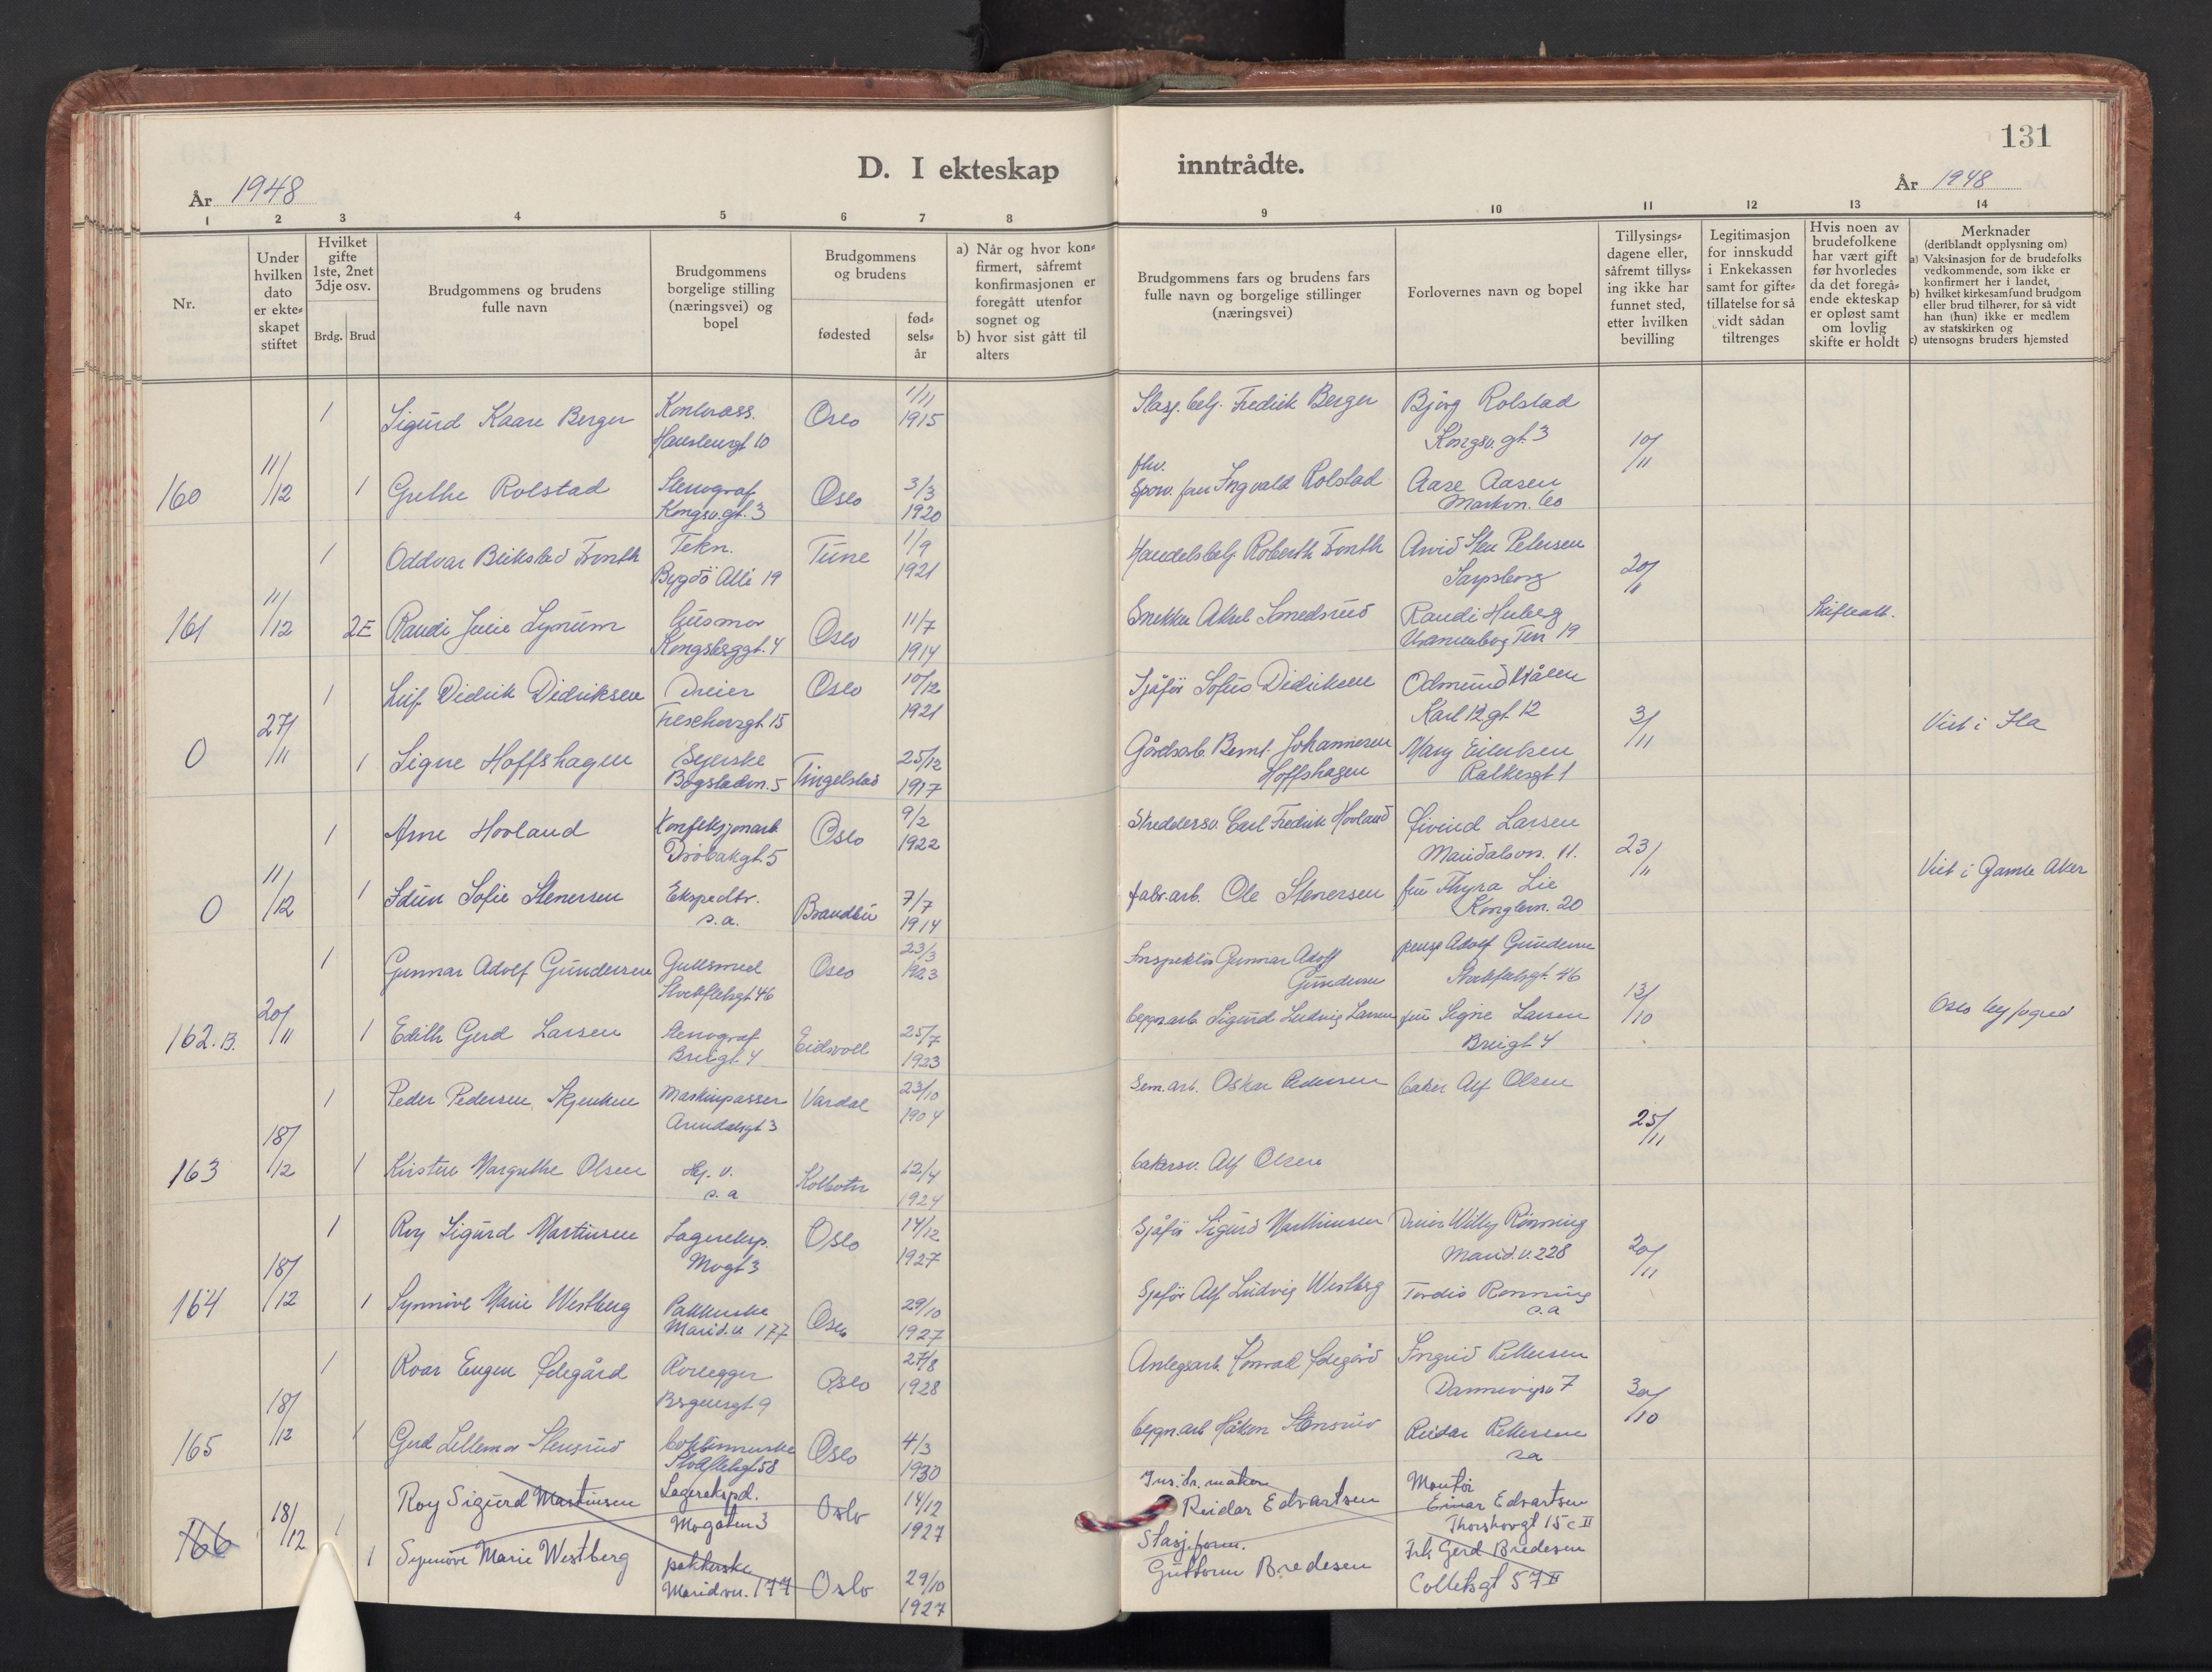 131
D. I ekteskap inntrådte.
År 1948
År 1948
1 2 3 4 5 6 7 8 9 10 11 12 13 14
Nr.
Under hvilken dato er ekte-skapet stiftet
Hvilket gifte 1ste, 2net 3dje osv.
Brdg. Brud
Brudgommens og brudens fulle navn
Brudgommens borgelige stilling (næringsvei) og bopel
Brudgommens og brudens
fødested
fød-sels-år
a) Når og hvor kon-firmert, såfremt konfirmasjonen er foregått utenfor sognet og
b) hvor sist gått til alters
Brudgommens fars og brudens fars fulle navn og borgelige stillinger (næringsvei)
Forlovernes navn og bopel
Tillysings-dagene eller, såfremt tillys-ing ikke har funnet sted, etter hvilken bevilling
Legitimasjon for innskudd i Enkekassen samt for gifte-tillatelse for så vidt sådan tiltrenges
Hvis noen av brudefolkene har vært gift før hvorledes da det foregå-ende ekteskap er opløst samt om lovlig skifte er holdt
Merknader
(deriblandt opplysning om)
a) Vaksinasjon for de brudefolks vedkommende, som ikke er konfirmert her i landet,
b) hvilket kirkesamfund brudgom eller brud tilhører, for så vidt han (hun) ikke er medlem av statskirken og
c) utensogns bruders hjemsted
1 Sigurd Kaare Berger Kontorass. Oslo 1/11 1915 Fredrik Berger Bjørg Rolstad
Kongsv.gt. 3 10/11
160 11/12 1 Grethe Rolstad Stenograf Kongsv.gt. 3 Oslo 3/3 1920 fhv. Sporv. Ingvald Rolstad Aase Aasen
Markvn. 60
1 Oddvar Tekn. Bygdö Allé 19 Tune 1/9 1921 Roberth Arvid Sten Petersen
Sarpsborg 20/11
161 11/12 2E Randi Julie Lynum Husmor Kongsberggt. 4 Oslo 11/7 1914 Snekker Aksel Smedsrud Randi
19 Skifteatt.
1 Leif Didrik Didriksen Dreier 15 Oslo 10/12 1921 Sjåfør Sofus Didriksen Odmund
Karl 12 gt 12 3/11
0 27/11 1 Signe Hoffshagen Syerske Bogstadvn. 5 Tingelstad 25/12 1917 Gårdsarb. Bernt Johannesen Hoffshagen Mary
1 Viet i Ila
1 Arne Hovland Konfeksjonarb. Drøbakgt. 5 Oslo 9/2 1922 Skreddersv. Carl Fredrik Hovland Øivind Larsen
11. 23/11
0 11/12 1 Idun Sofie Stenersen Ekspedtr. s.a. Brandbu 7/7 1914 fabr.arb. Ole Stenersen fru Thyra Lie
20 Viet i Gamle Aker
1 Gunnar Adolf Gundersen Gullsmed 46 Oslo 23/3 1923 Inspektör Gunnar Adolf Gundersen pensj Adolf Gundersen
46 13/10
162.B. 20/11 1 Edith Gerd Larsen Stenograf 4 Eidsvoll 25/7 1923 bygn.arb. Sigurd Ludvig Larsen fru Signe Larsen
4 Oslo byfogd
1 Peder Pedersen Maskinpasser Arendalsgt 3 Vardal 23/10 1904 Sem.arb. Oskar Pedersen baker Alf Olsen
25/11
163 18/12 1 Kirsten Margrethe Olsen Hj. v. s.a Kolbotn 12/4 1924 bakersv. Alf Olsen
1 Roy Sigurd Martinsen Lagereksp. Mogt 3 Oslo 14/12 1927 Sjåfør Sigurd Marthinsen Dreier Willy Rönning
Marid.v. 228 20/11
164 18/12 1 Synnöve Marie Westberg Pakkerske Marid.v. 177 Oslo 29/10 1927 Sjåför Alf Ludvig Westberg Tordis Rönning
s.a
1 Roar Eugen Ødegård Rörlegger 9 Oslo 27/8 1928 Anlegsarb. Konrad Ødegård Ingrid Pettersen
7 30/10
165 18/12 1 Gerd Lillemor Stensrud 58 Oslo 4/3 1930 bygn.arb Håkon Stensrud Reidar Pettersen
s.a
166 18/12 1 Roy Sigurd Martinsen Lagerekspd. Mogaten 3 Oslo 14/12 1927 Reidar Edvartsen Montör Einar Edvartsen
Thorshovgt 15c II
1 Synnöve Marie Westberg pakkerske Maridvn. 177 Oslo 29/10 1927 Stasj.form. Guttorm Bredesen Frk Gerd Bredesen
Colletsgt 57 II